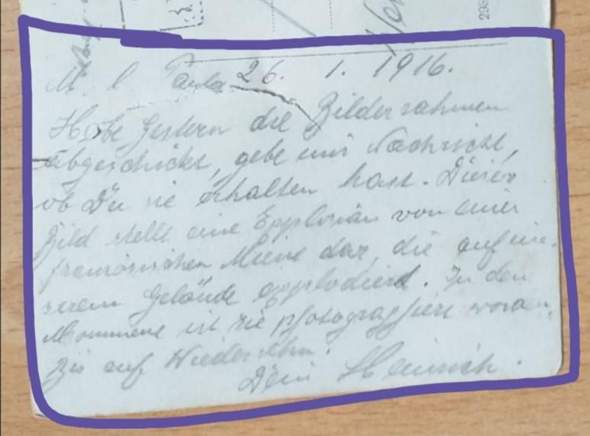 M. l. Paula 26. 1. 1916.
Habe gestern die Bilderrahmen
abgeschickt, gebe mir Nachricht,
ob Du sie erhalten hast. Dieses
Bild stellt eine Explosion von einer
französischen Miene dar, die auf un-
serem Gelände explodiert. In dem
Moment ist sie photographiert worden.
Bis auf Wiedersehn.
Dein Heinrich.